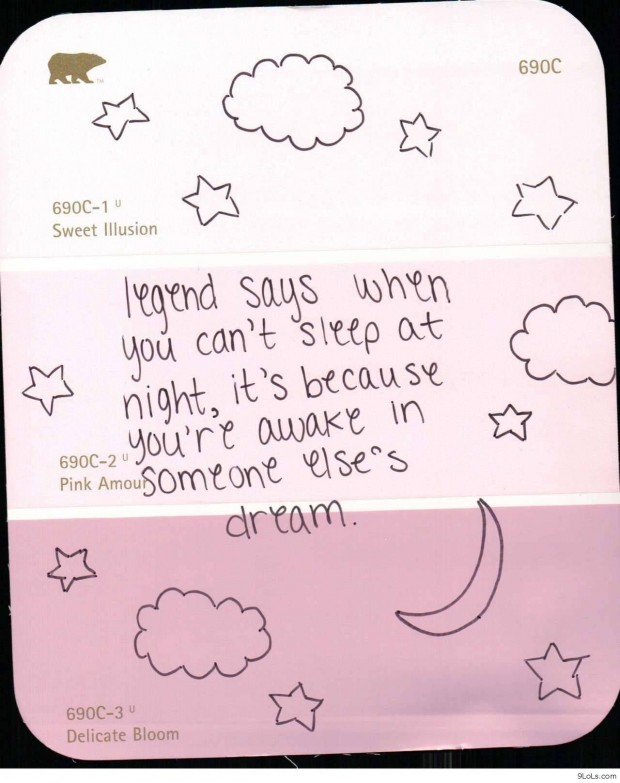 690C
690C-1 U
Sweet Illusion
legend says when
you can't sleep at
night, it's because
you're awake in
someone else's
dream.
690C-2 U
Pink Amour
690C-3 U
Delicate Bloom
9LoLs.com